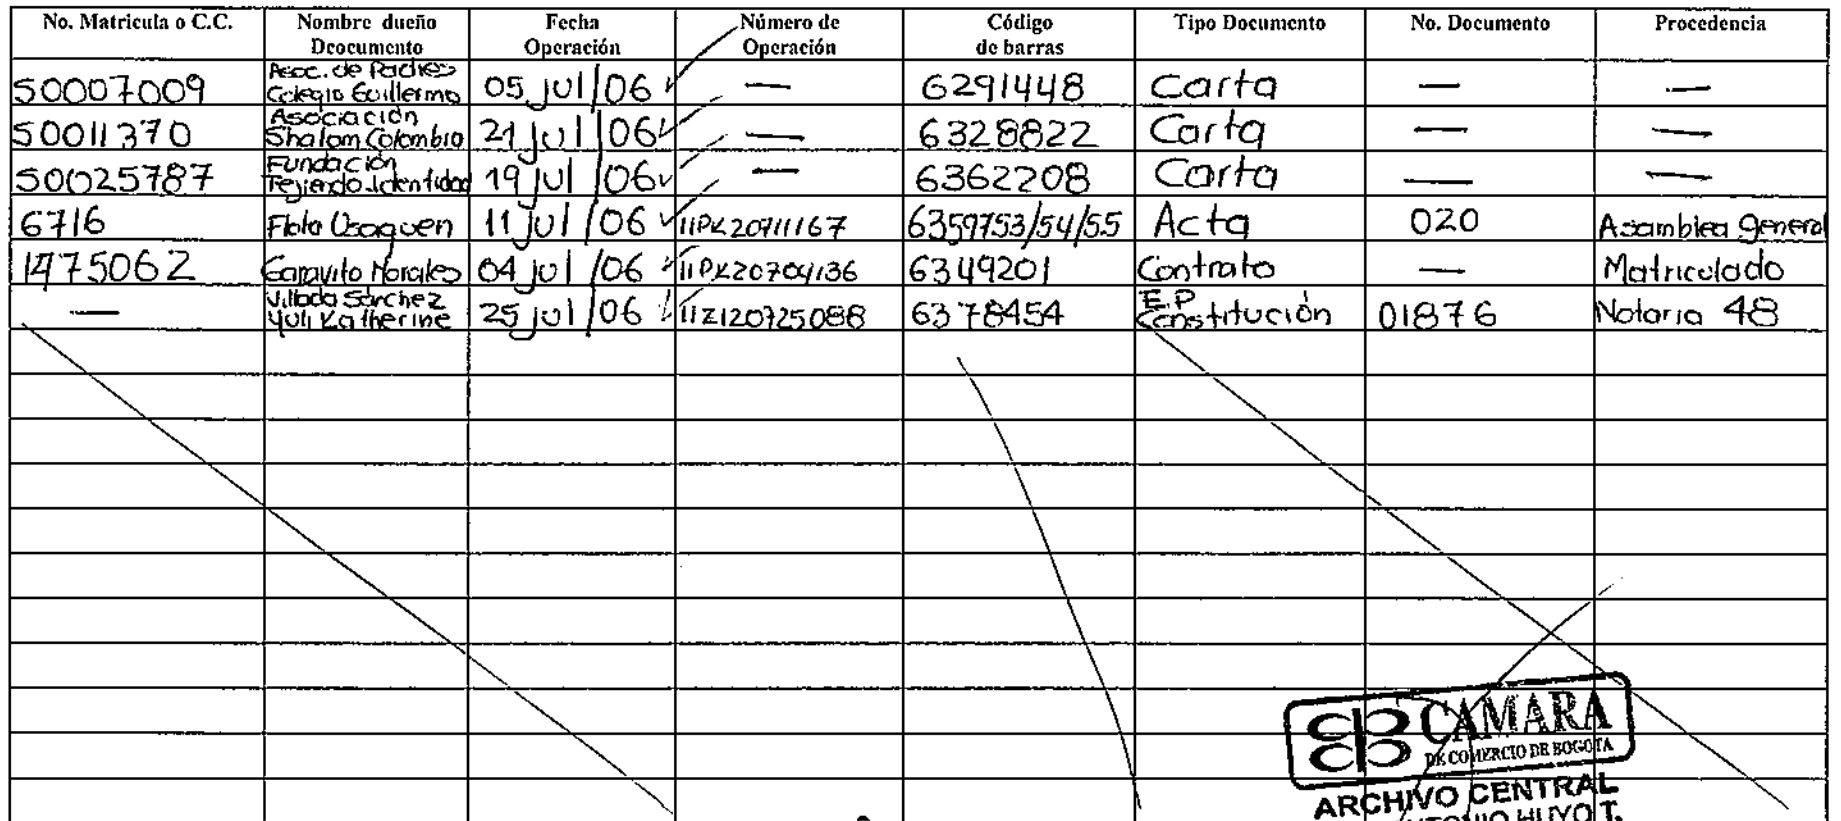 No. Matricula o C.C. Nombre dueño Deocumento Fecha Operación Número de Operación Código de barras Tipo Documento No. Documento Procedencia
S0007009 Asoc. de Padres Colegio Guillermo 05 jul/06 — 6291448 Carta — —
S0011370 Asociación Shalom Colombia 21 jul/06 — 6328822 Carta — —
S0025787 Fundación Tejiendo Identidad 19 jul/06 — 6362208 Carta — —
6716 Flota Usaquen 11 jul/06 11PK20711167 6359753/54/55 Acta 020 Asamblea general
1475062 Garavito Morales 04 jul/06 11PK20704136 6349201 Contrato — Matriculado
— Villada Sánchez Yuli Katherine 25 jul/06 11Z120725088 6378454 E.P Constitución 01876 Notaria 48
CAMARA
DE COMERCIO DE BOGOTA
ARCHIVO CENTRAL
HUYO T.